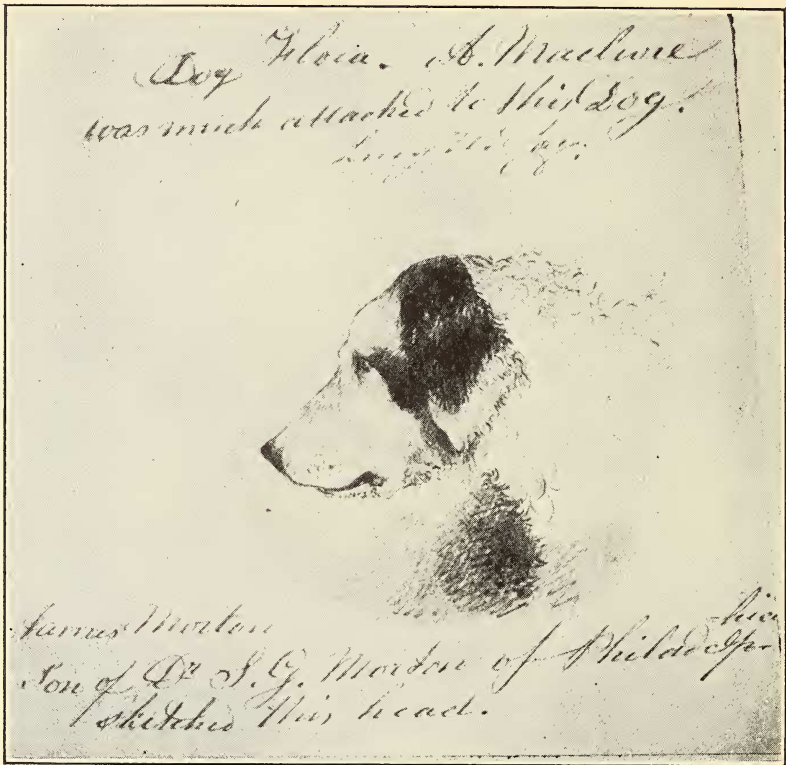 Dog Flora. A. Maclure
was much attached to this Dog.
James Morton
Son of Dr S. G. Morton of Philadelp-
hia
sketched this head.